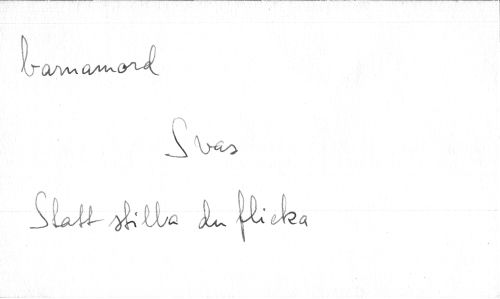 barnamord
Svas
Statt stilla du flicka